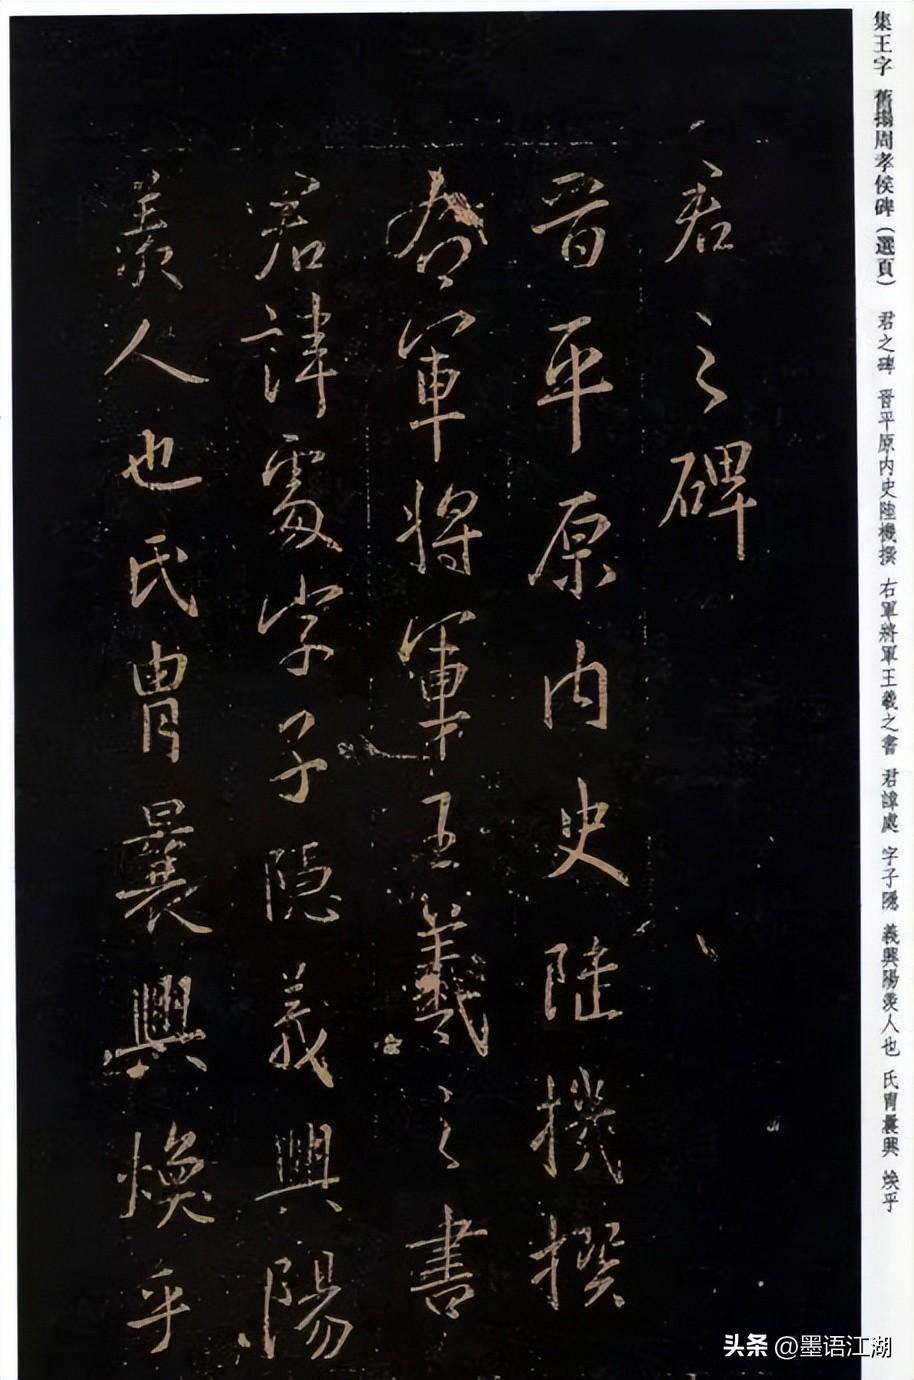 集王字 舊搨周孝侯碑（選頁） 君之碑 晉平原内史陸機撰 右軍將軍王羲之書 君諱處 字子隱 義興陽羨人也 氏胄曩興 焕乎
君之碑
晉平原内史陸機撰
右軍將軍王羲之書
君諱處字子隱義興陽
羨人也氏胄曩興焕乎
头条 @墨语江湖